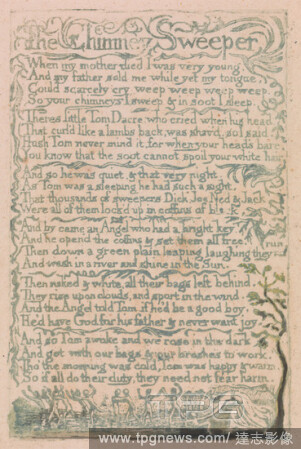 The Chimney Sweeper
When my mother died I was very young
And my father sold me while yet my tongue,
Could scarcely cry weep weep weep weep.
So your chimneys I sweep & in soot I sleep.
Theres little Tom Dacre who cried when his head
That curl'd like a lambs back, was shav'd, so I said.
Hush Tom never mind it, for when your heads bare,
You know that the soot cannot spoil your white hair
And so he was quiet, & that very night,
As Tom was a sleeping he had such a sight,
That thousands of sweepers Dick, Joe, Ned & Jack
Were all of them lock'd up in coffins of black
And by came an Angel who had a bright key
And he open'd the coffins & set them all free.
Then down a green plain leaping laughing they run
And wash in a river and shine in the Sun.
Then naked & white, all their bags left behind,
They rise upon clouds, and sport in the wind.
And the Angel told Tom, if he'd be a good boy,
He'd have God for his father & never want joy.
And so Tom awoke and we rose in the dark
And got with our bags & our brushes to work.
Tho' the morning was cold, Tom was happy & warm
So if all do their duty, they need not fear harm.
TPG
www.tpgnews.com / 達志影像